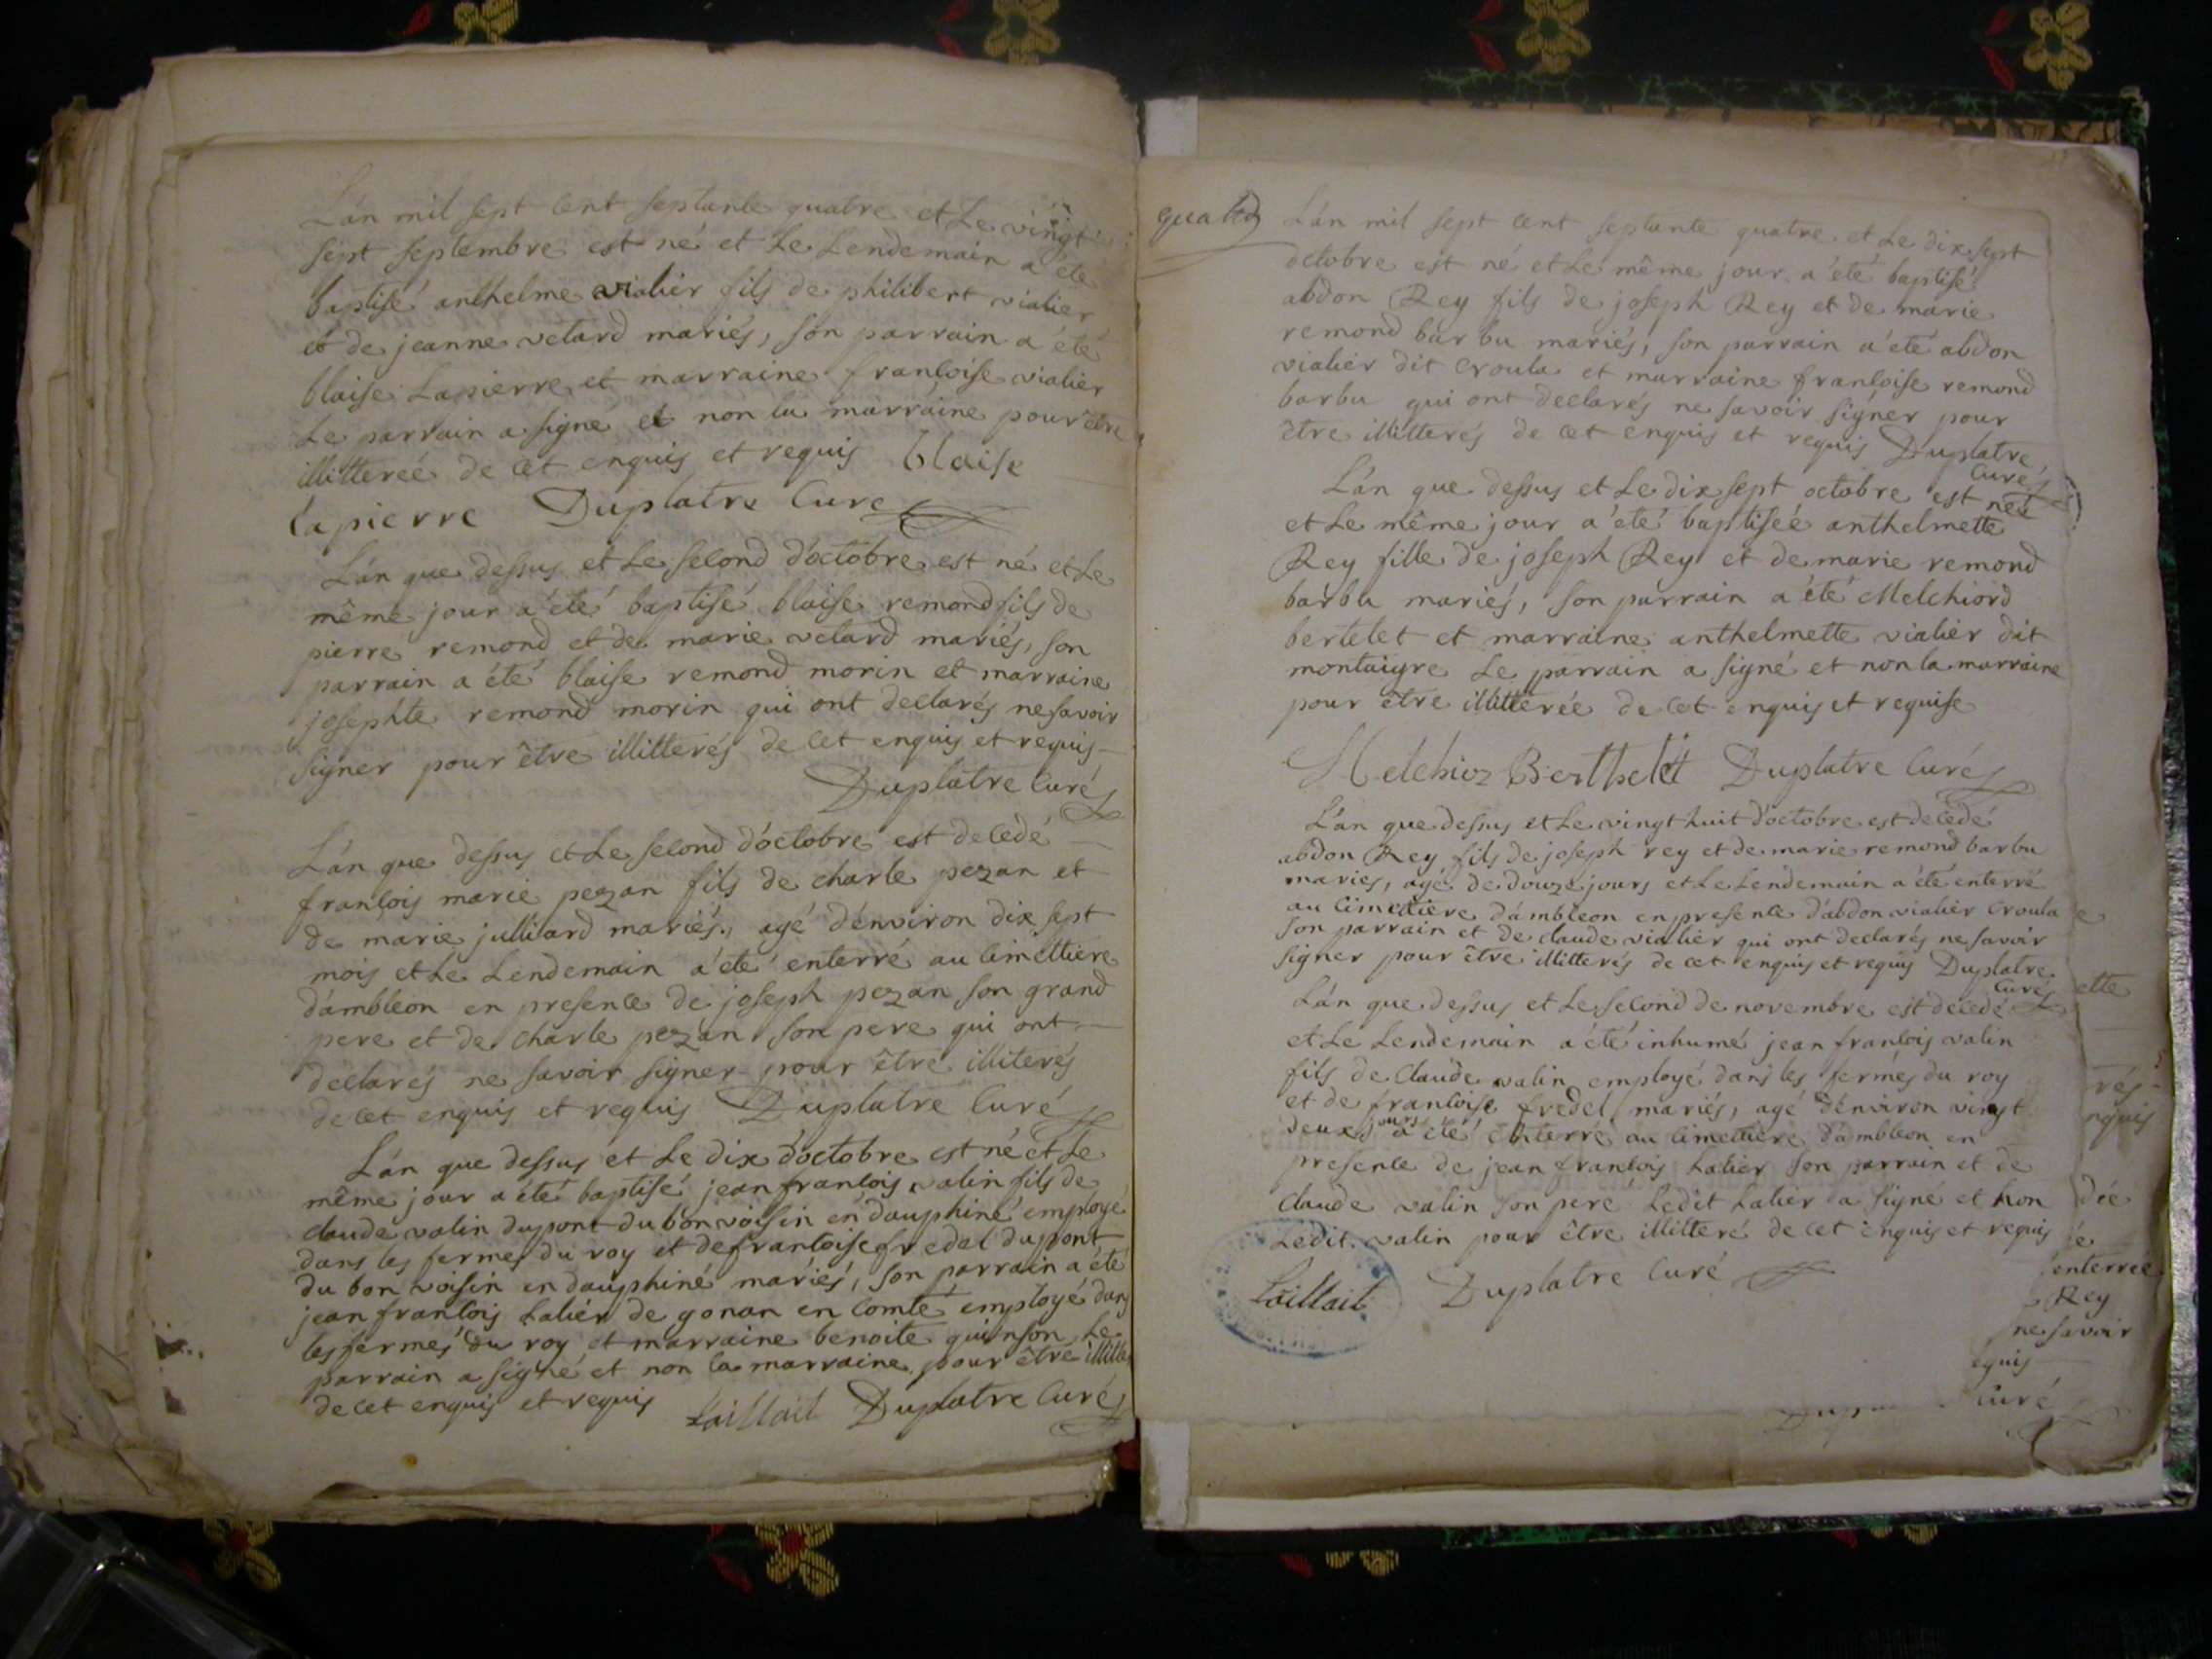 Lán mil sept cent septante quatre et Le vingt
sept septembre est né et Le Lendemain a été
baptisé anthelme vialier fils de philibert vialier
et de jeanne velard mariés, son parrain a été
blaise Lapierre et marraine françoise vialier
Le parrain a signé et non la marraine pour être
illitterée de cet enquis et requis blaise
lapierre Duplatre Curé
Lán que dessus et Le second d'octobre est né et Le
même jour a été baptisé blaise remond fils de
pierre remond et de marie velard mariés, son
parrain a été blaise remond morin et marraine
josephte remond morin qui ont declarés ne savoir
signer pour être illitterés de cet enquis et requis
Duplatre Curé
Lán que dessus et Le second d'octobre est decedé
françois marie pezan fils de charle pezan et
de marie julliard mariés, agé d'environ dix sept
mois et Le Lendemain a été enterré au cimettiere
d'ambleon en presence de joseph pezan son grand
pere et de charle pezan son pere qui ont
declarés ne savoir signer pour être illiterés
de cet enquis et requis Duplatre Curé
Lán que dessus et Le dix d'octobre est né et Le
même jour a été baptisé jean françois valin fils de
claude valin dupont du bonvoisin en dauphiné employé
dans les fermes du roy et de francoise fredel dupont
du bon voisin en dauphiné mariés, son parrain a été
jean françois Lalier de gonan en Comté employé dans
les fermes du roy et marraine benoite quinson Le
parrain a signé et non la marraine pour être illitte
de cet enquis et requis Laillait Duplatre Curé
quattr
Lán mil sept cent septante quatre et Le dix sept
octobre est né et Le même jour a été baptisé
abdon Rey fils de joseph Rey et de marie
remond barbu mariés, son parrain a été abdon
vialier dit croula et marraine françoise remond
barbu qui ont declarés ne savoir signer pour
être illitterés de cet enquis et requis Duplatre
Curé
Lán que dessus et Le dix sept octobre est née
et Le même jour a été baptisée anthelmette
Rey fille de joseph Rey et de marie remond
barbu mariés, son parrain a été Melchiord
bertelet et marraine anthelmette vialier dit
montaigre Le parrain a signé et non la marraine
pour être illitterée de cet enquis et requise
Melchior Berthelet Duplatre Curé
Lán que dessus et Le vingt huit d'octobre est decedé
abdon Rey fils de joseph rey et de marie remond barbu
mariés, agé de douze jours et Le Lendemain a été enterré
au cimettiere d'ambleon en presence d'abdon vialier Croula
son parrain et de claude vialier qui ont declarés ne savoir
signer pour être illitterés de cet enquis et requis Duplatre
Curé
Lán que dessus et Le second de novembre est decedé
et Le Lendemain a été inhumé jean françois valin
fils de Claude valin employé dans les fermes du roy
et de francoise fredel mariés, agé d'environ vingt
deux jours a été enterré au cimettiere d'ambleon en
presence de jean françois Lalier son parrain et de
claude valin son pere Ledit Lalier a signé et non
Ledit valin pour être illitteré de cet enquis et requis
Laillait Duplatre Curé
e
ette
rés
nquis
dée
é
enterrée
Rey
ne savoir
equis
Dup Curé